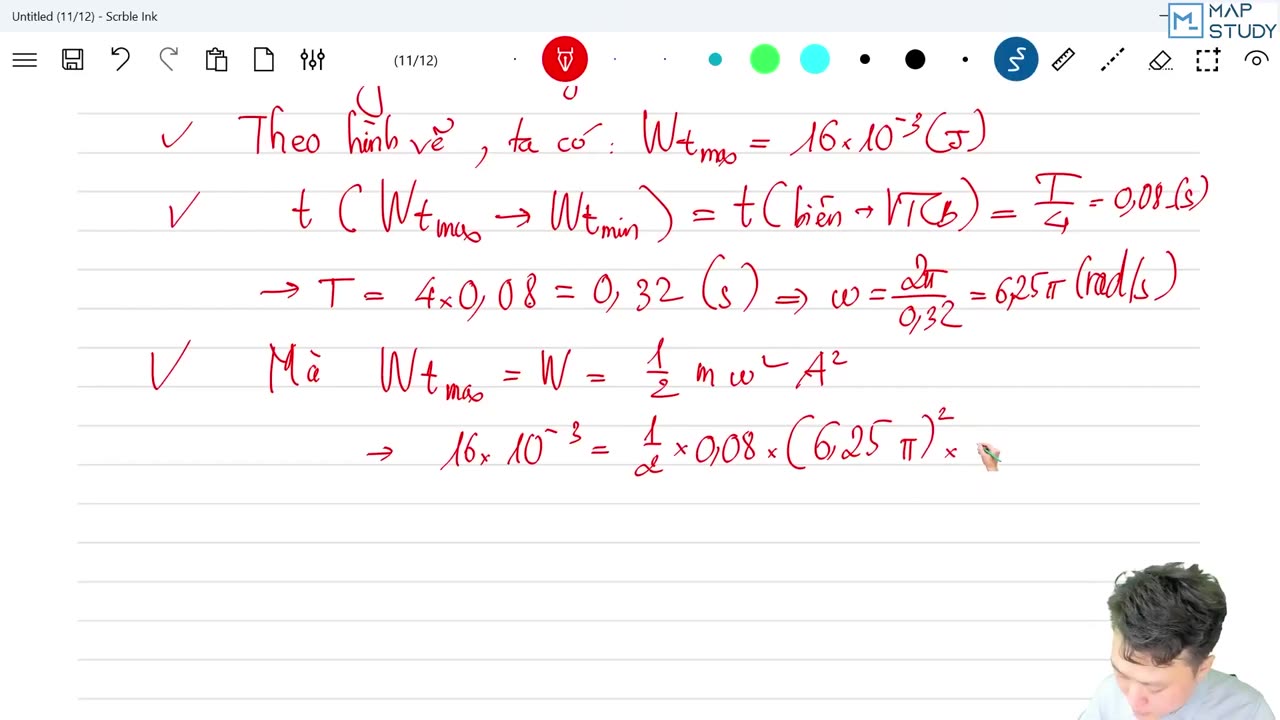 Untitled (11/12) - Scrble Ink
MAP STUDY
(11/12)
✓ Theo hình vẽ, ta có: Wtmax = 16×10⁻³ (J)
✓ t (Wtmax → Wtmin) = t (biên → VTCB) = T/4 = 0,08 (s)
→ T = 4×0,08 = 0,32 (s) ⇒ ω = 2π/0,32 = 6,25π (rad/s)
✓ Mà Wtmax = W = 1/2 m ω² A²
→ 16×10⁻³ = 1/2 × 0,08 × (6,25 π)² ×